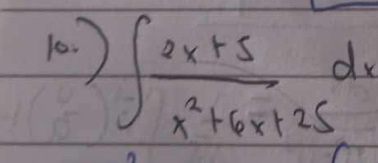 10.) ∫ (2x + 5)/(x² + 6x + 25) dx